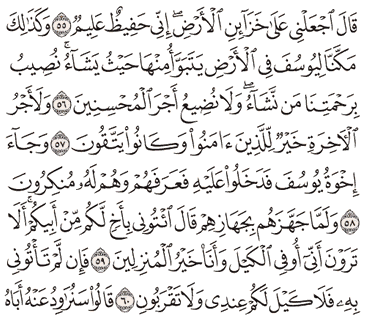 قَالَ ٱجۡعَلۡنِي عَلَىٰ خَزَآئِنِ ٱلۡأَرۡضِۖ إِنِّي حَفِيظٌ عَلِيمٞ ٥٥ وَكَذَٰلِكَ
مَكَّنَّا لِيُوسُفَ فِي ٱلۡأَرۡضِ يَتَبَوَّأُ مِنۡهَا حَيۡثُ يَشَآءُۚ نُصِيبُ
بِرَحۡمَتِنَا مَن نَّشَآءُۖ وَلَا نُضِيعُ أَجۡرَ ٱلۡمُحۡسِنِينَ ٥٦ وَلَأَجۡرُ
ٱلۡأٓخِرَةِ خَيۡرٞ لِّلَّذِينَ ءَامَنُواْ وَكَانُواْ يَتَّقُونَ ٥٧ وَجَآءَ
إِخۡوَةُ يُوسُفَ فَدَخَلُواْ عَلَيۡهِ فَعَرَفَهُمۡ وَهُمۡ لَهُۥ مُنكِرُونَ
٥٨ وَلَمَّا جَهَّزَهُم بِجَهَازِهِمۡ قَالَ ٱئۡتُونِي بِأَخٖ لَّكُم مِّنۡ أَبِيكُمۡۚ أَلَا
تَرَوۡنَ أَنِّيٓ أُوفِي ٱلۡكَيۡلَ وَأَنَا۠ خَيۡرُ ٱلۡمُنزِلِينَ ٥٩ فَإِن لَّمۡ تَأۡتُونِي
بِهِۦ فَلَا كَيۡلَ لَكُمۡ عِندِي وَلَا تَقۡرَبُونِ ٦٠ قَالُواْ سَنُرَٰوِدُ عَنۡهُ أَبَاهُ